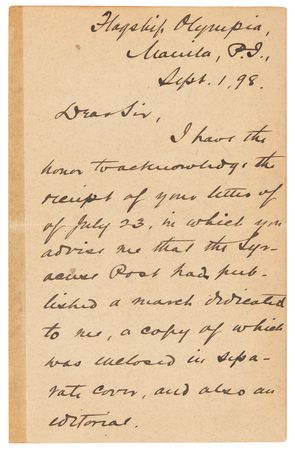 Flagship Olympia,
Manila, P.I.,
Sept. 1, 98.
Dear Sir,
I have the
honor to acknowledge the
receipt of your letter of
of July 23, in which you
advise me that the Syr-
acuse Post had pub-
lished a march dedicated
to me, a copy of which
was enclosed in sepa-
rate cover, and also an
editorial.